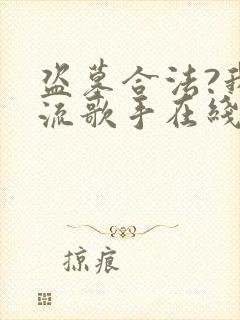 盗墓合法?我
流歌手在綫
掠痕